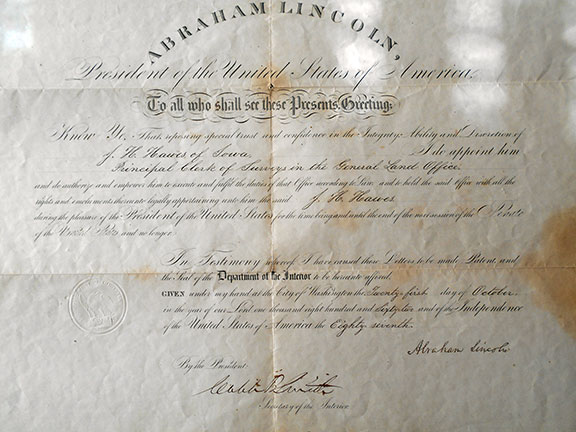 ABRAHAM LINCOLN,
President of the United States of America.
To all who shall see these Presents, Greeting:
Know Ye, That reposing special trust and confidence in the Integrity, Ability and Discretion of
J. H. Hawes of Iowa I do appoint him
Principal Clerk of Surveys in the General Land Office
and do authorize and empower him to execute and fulfil the duties of that Office according to Law, and to hold the said office with all the
rights and emoluments thereunto legally appertaining unto him the said J. H. Hawes
during the pleasure of the President of the United States for the time being and until the end of the next session of the Senate
of the United States and no longer.
In Testimony whereof, I have caused these Letters to be made Patent, and
the Seal of the Department of the Interior to be hereunto affixed.
GIVEN under my hand at the City of Washington the Twenty first day of October
in the year of our Lord one thousand eight hundred and Sixty two and of the Independence
of the United States of America the Eighty seventh.
Abraham Lincoln
By the President:
Caleb B Smith
Secretary of the Interior.